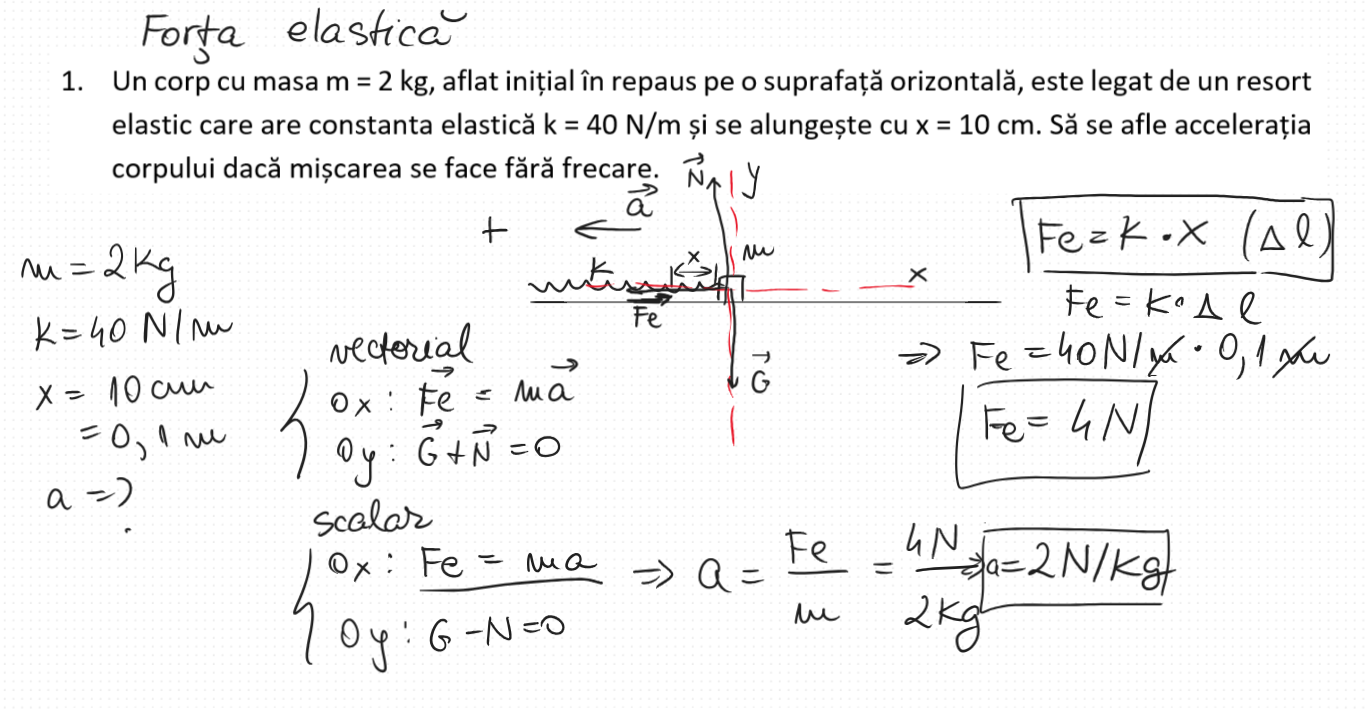 Forța elastică
1. Un corp cu masa m = 2 kg, aflat inițial în repaus pe o suprafață orizontală, este legat de un resort
elastic care are constanta elastică k = 40 N/m și se alungește cu x = 10 cm. Să se afle accelerația
corpului dacă mișcarea se face fără frecare.
N⃗ y
a⃗
+
m
x
K
x
Fe
G⃗
m = 2Kg
K = 40 N/m
x = 10 cm
= 0,1 m
a = ?
Fe = K · X (Δl)
Fe = K · Δl
=> Fe = 40N/m · 0,1 m
Fe = 4N
vectorial
Ox : F⃗e = ma⃗
Oy : G⃗ + N⃗ = 0
scalar
Ox : Fe = ma => a = Fe/m = 4N/2Kg => a = 2N/Kg
Oy : G - N = 0